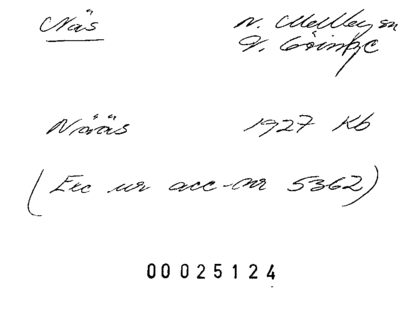 Näs
N. Mellby sn
V. Göinge
Nääs 1927 Kb
(Exc ur acc-nr 5362)
00 025124